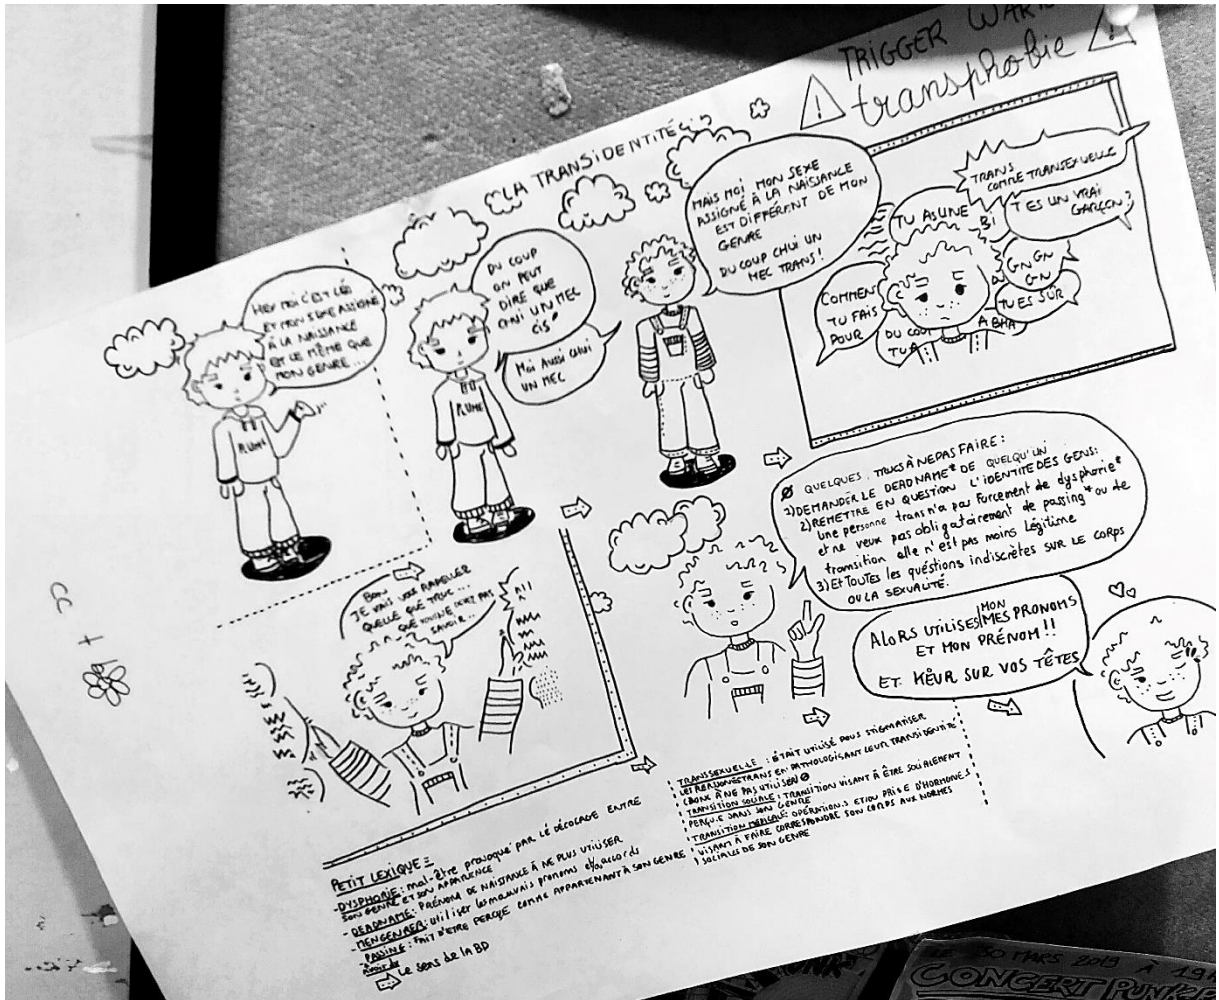 TRIGGER
transphobie
LA TRANSIDENTITÉ
HEY MOI C'EST LÉO
ET MON SEXE ASSIGNÉ
À LA NAISSANCE
EST LE MÊME QUE
MON GENRE...
PLUME
DU COUP
ON PEUT
DIRE QUE
CHUI UN MEC
CIS
MOI AUSSI CHUI
UN MEC
PLUME
MAIS MOI MON SEXE
ASSIGNÉ À LA NAISSANCE
EST DIFFÉRENT DE MON
GENRE
DU COUP CHUI UN
MEC TRANS!
TRANS
COMME TRANSEXUELLE
TU AS UNE
BI
T ES UN VRAI
GARÇON?
GN GN
GN
TU ES SÛR
COMMEN
TU FAIS
POUR
DU COUP
TU A
A BHA
BON
JE VAIS VOUS RAPPELLER
QUELLE QUE TRUC...
SAVOIR..
QUELQUES TRUCS À NE PAS FAIRE:
1) DEMANDER LE DEADNAME* DE QUELQU'UN
2) REMETTRE EN QUESTION L'IDENTITE DES GENS:
une personne trans n'a pas forcement de dysphorie*
et ne veux pas obligatoirement de passing* ou de
transition elle n'est pas moins légitime
3) ET TOUTES les quéstions indiscrètes SUR LE CORPS
OU LA SEXUALITÉ.
ALORS UTILISES MON MES PRONOMS
ET MON PRÉNOM!!
ET KËUR SUR VOS TÊTES
PETIT LEXIQUE=
-DYSPHORIE: mal-être provoqué par LE DÉCALAGE ENTRE
SON GENRE ET SON APPARENCE
- DEADNAME: PRÉNOM DE NAISTANCE À NE PLUS UTILISER
- MEGENRER: utiliser les mauvais pronoms et/ou accords
- PASSING: FAIT D'ETRE PERÇUE COMME APPARTENANT À SON GENRE
Le sens de la BD
TRANSSEXUEL-LE: ÉTAIT UTILISÉ POUR STIGMATISER
LES PERSONNES TRANS EN PATHOLOGISANT LEUR TRANSIDENTITÉ
(DONC À NE PAS UTILISER)
TRANSITION SOCIALE: TRANSITION VISANT À ÊTRE SOCIALEMENT
PERÇU.E DANS SON GENRE
TRANSITION MÉDICALE: OPÉRATIONS ET/OU PRISE D'HORMONES
VISANT À FAIRE CORRESPONDRE SON CORPS AUX NORMES
SOCIALES DE SON GENRE
LE 30 MARS 2019 À 19
CONCERT PUNK